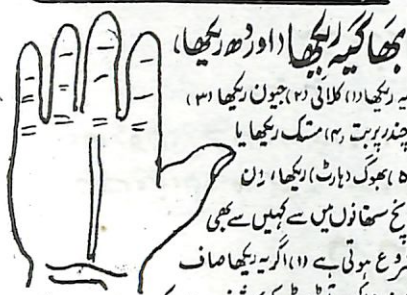 بھاگیہ ریکھا (اوردھ ریکھا)،
یہ ریکھا (۱) کلائی (۲) جیون ریکھا (۳)
چندر پربت (۴) مستک ریکھا یا
(۵) بھوگ (ہارٹ) ریکھا، اِن
پنچ ستھانوں میں سے کہیں سے بھی
شروع ہوتی ہے (۱) اگر یہ ریکھا صاف